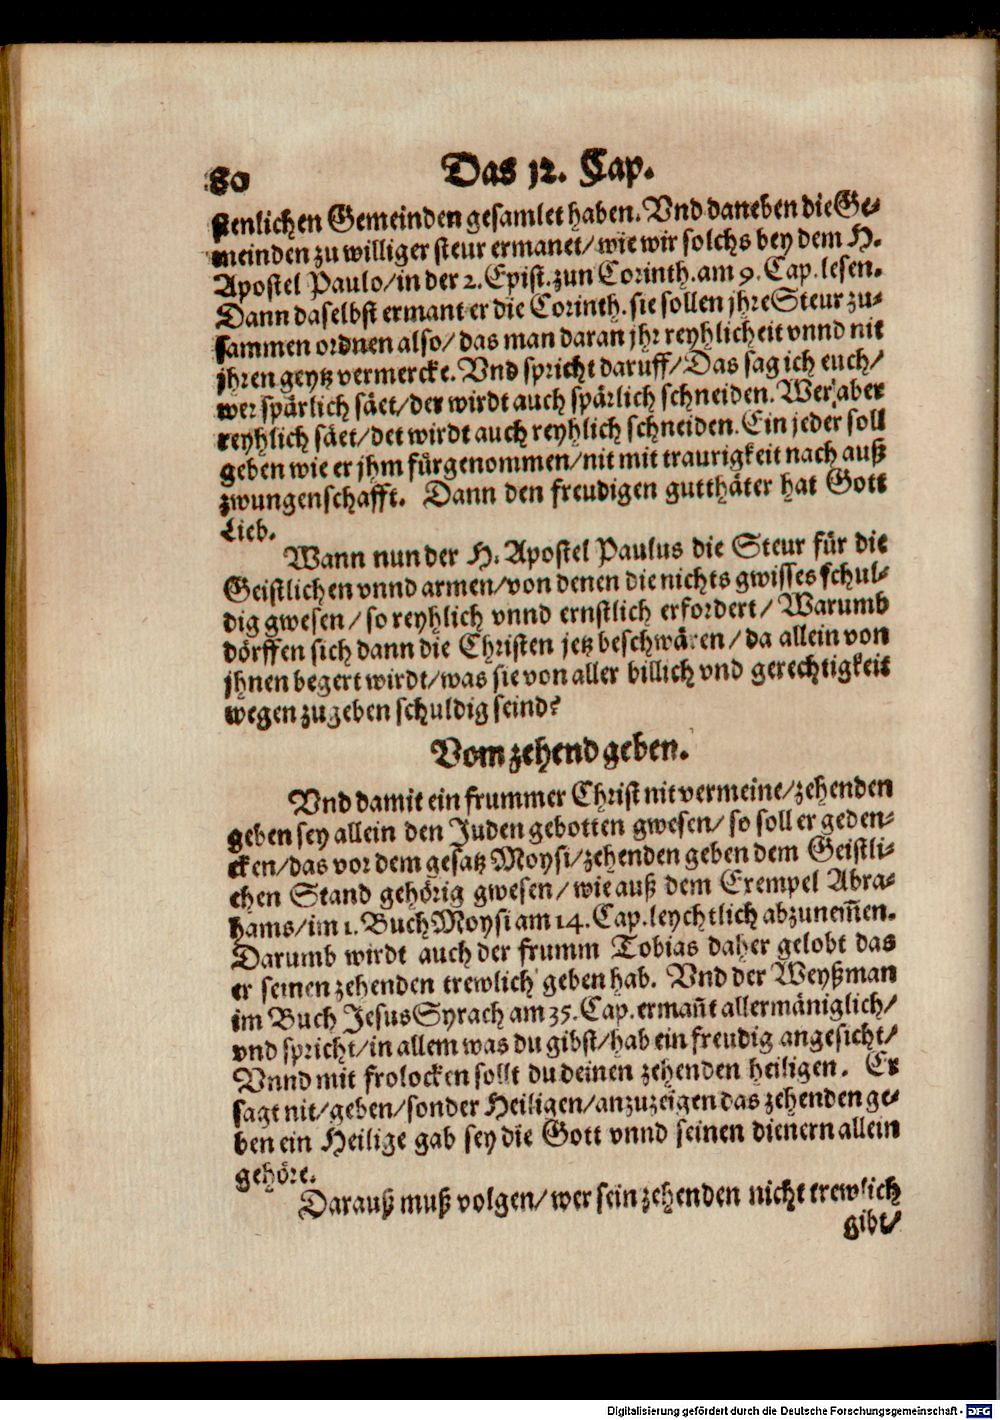 80 Das 12. Cap.
stenlichen Gemeinden gesamlet haben. Vnd daneben die Ge-
meinden zu williger steur ermanet/ wie wir solchs bey dem H.
Apostel Paulo/ in der 2. Epist. zun Corinth. am 9. Cap. lesen.
Dann daselbst ermant er die Corinth. sie sollen jhre Steur zu-
sammen ordnen also/ das man daran jhr reyhlicheit vnnd nit
jhren geytz vermercke. Vnd spricht daruff/ Das sag ich euch/
wer spärlich säet/ der wirdt auch spärlich schneiden. Wer aber
reyhlich säet/ det wirdt auch reyhlich schneiden. Ein jeder soll
geben wie er jhm fürgenommen/ nit mit traurigkeit nach auß
zwungenschafft. Dann den freudigen gutthäter hat Gott
Lieb.
Wann nun der H. Apostel Paulus die Steur für die
Geistlichen vnnd armen/ von denen die nichts gwisses schul-
dig gwesen/ so reyhlich vnnd ernstlich erfordert/ Warumb
dörffen sich dann die Christen jetz beschwären/ da allein von
jhnen begert wirdt/ was sie von aller billich vnd gerechtigkeit
wegen zugeben schuldig seind?
Vom zehend geben.
Vnd damit ein frummer Christ nit vermeine/ zehenden
geben sey allein den Juden gebotten gwesen/ so soll er geden-
cken/ das vor dem gesatz Moysi/ zehenden geben dem Geistli-
chen Stand gehörig gwesen/ wie auß dem Exempel Abra-
hams/ im 1. Buch Moysi am 14. Cap. leychtlich abzunem̃en.
Darumb wirdt auch der frumm Tobias daher gelobt das
er seinen zehenden trewlich geben hab. Vnd der Weyßman
im Buch Jesus Syrach am 35. Cap. ermañt allermäniglich/
vnd spricht/ in allem was du gibst/ hab ein freudig angesicht/
Vnnd mit frolocken sollt du deinen zehenden heiligen. Er
sagt nit/ geben/ sonder Heiligen/ anzuzeigen das zehenden ge-
ben ein Heilige gab sey die Gott vnnd seinen dienern allein
gehöre.
Darauß muß volgen/ wer sein zehenden nicht trewlich
gibt/
Digitalisierung gefördert durch die Deutsche Forschungsgemeinschaft - DFG